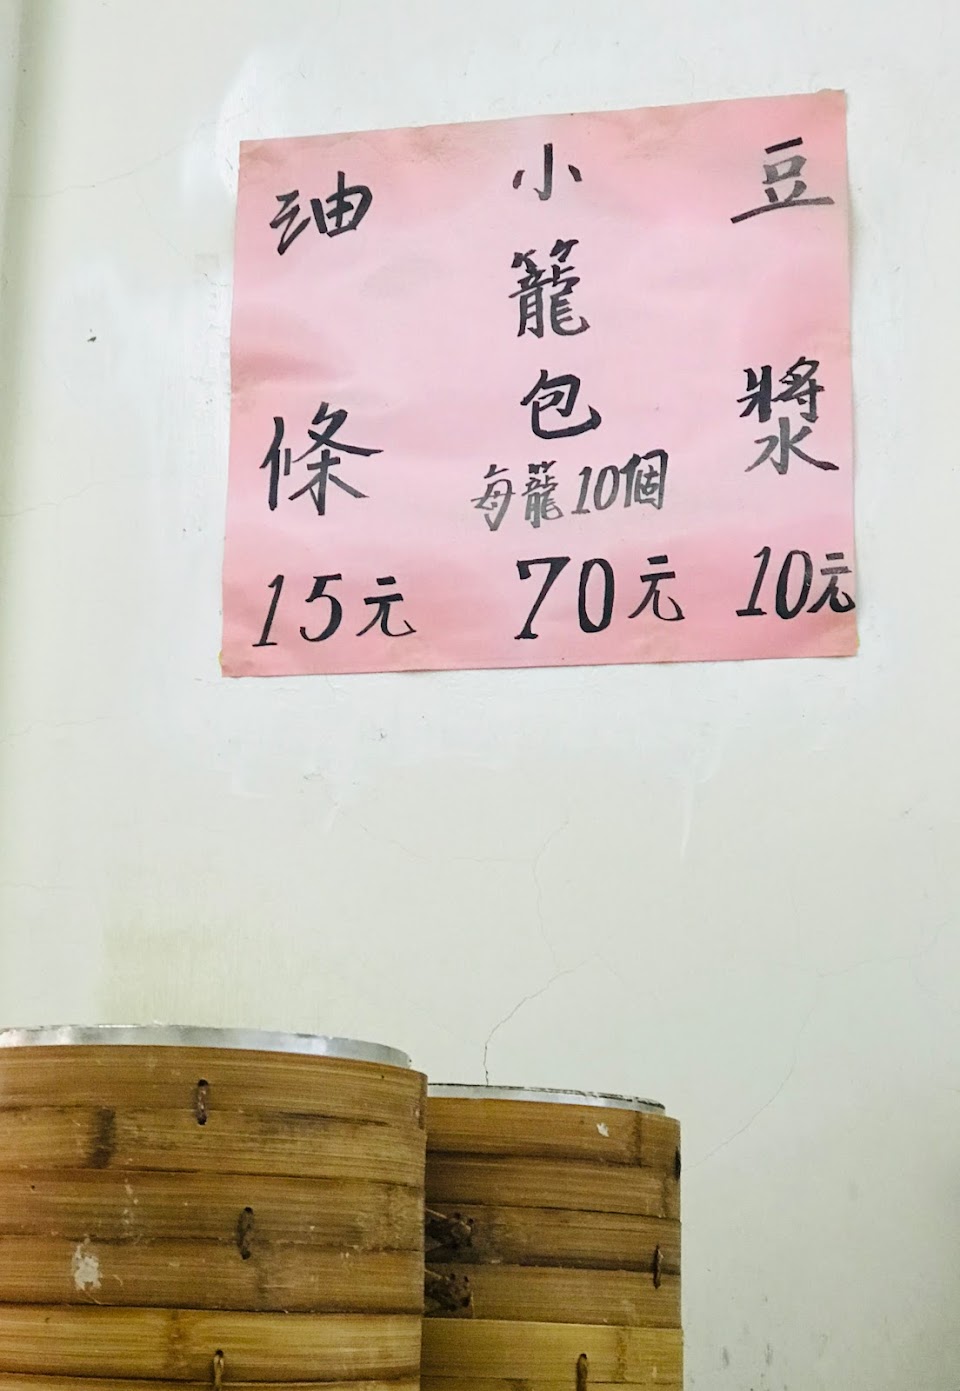 豆漿
10元
小籠包
每籠10個
70元
油條
15元